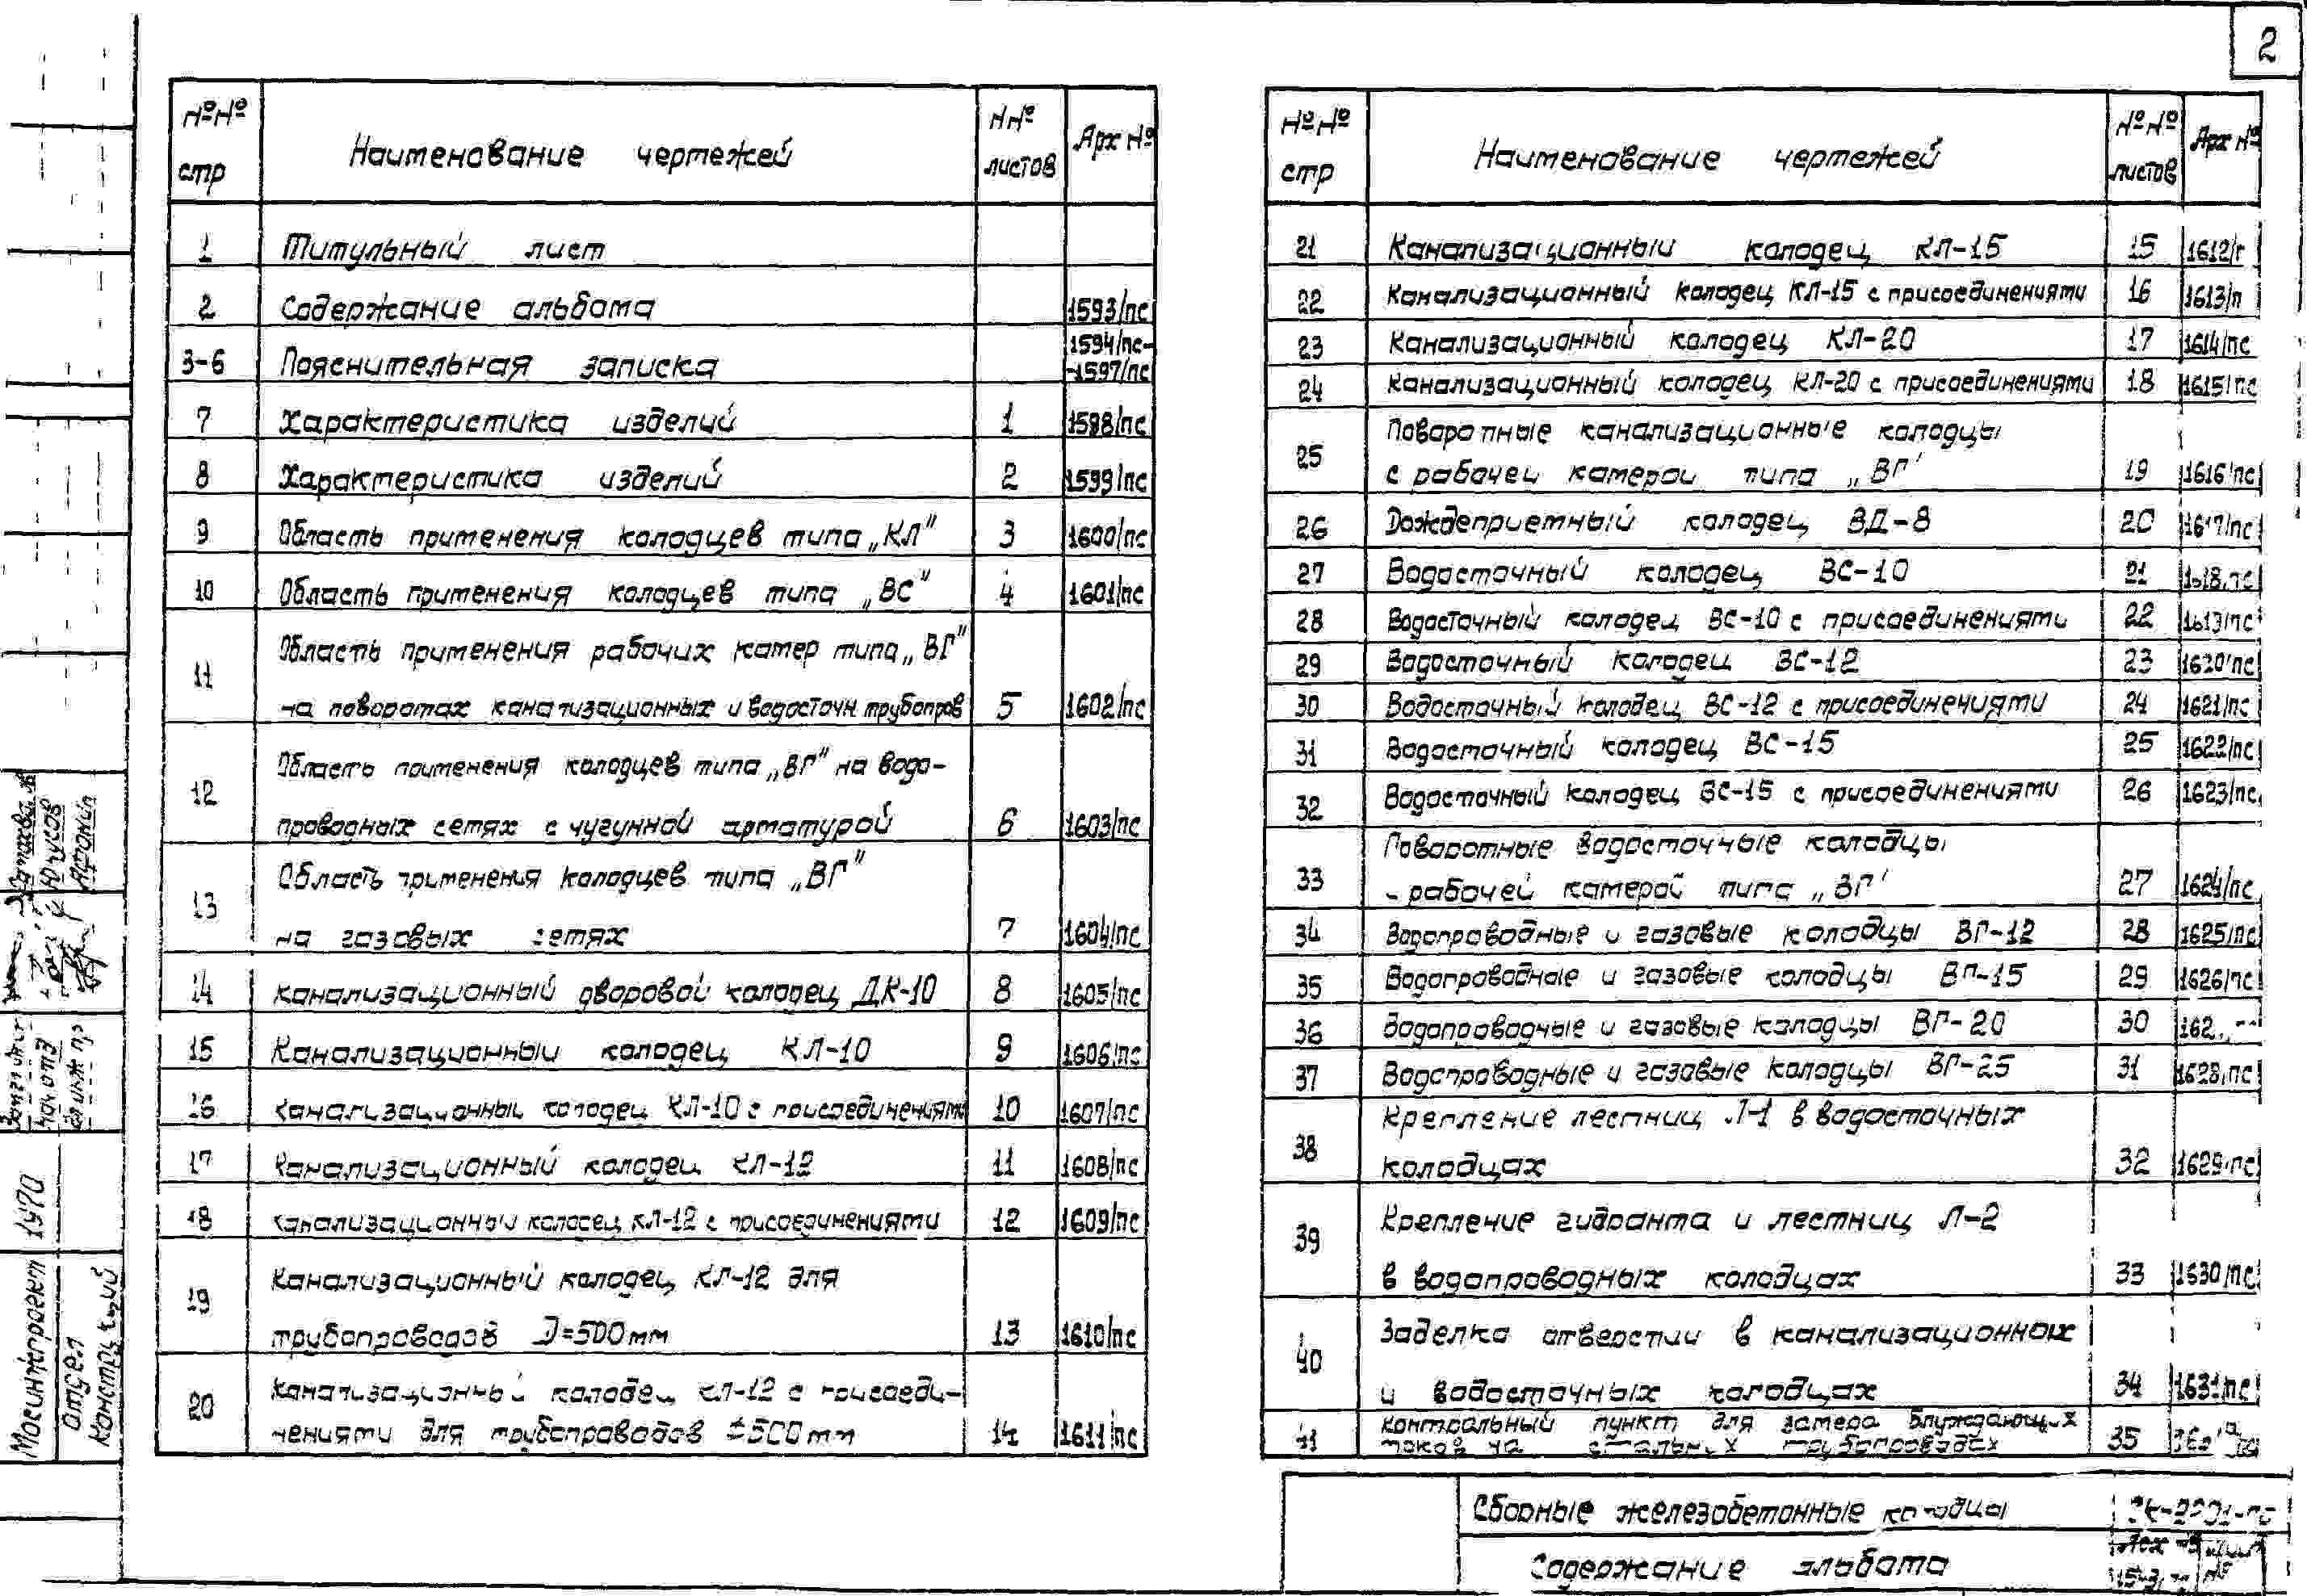 2
№№ стр Наименование чертежей №№ листов Арх №
1 Титульный лист
2 Содержание альбома 1593/пс
3-6 Пояснительная записка 1594/пс-
-1597/пс
7 Характеристика изделий 1 1598/пс
8 Характеристика изделий 2 1599/пс
9 Область применения колодцев типа „КЛ" 3 1600/пс
10 Область применения колодцев типа „ВС" 4 1601/пс
11 Область применения рабочих камер типа „ВГ"
на поворотах канализационных и водосточн трубопров 5 1602/пс
12 Область применения колодцев типа „ВГ" на водо-
проводных сетях с чугунной арматурой 6 1603/пс
13 Область применения колодцев типа „ВГ"
на газовых сетях 7 1604/пс
14 Канализационный дворовой колодец ДК-10 8 1605/пс
15 Канализационный колодец КЛ-10 9 1606/пс
16 Канализационный колодец КЛ-10 с присоединениями 10 1607/пс
17 Канализационный колодец КЛ-12 11 1608/пс
18 Канализационный колодец КЛ-12 с присоединениями 12 1609/пс
19 Канализационный колодец КЛ-12 для
трубопроводов D=500мм 13 1610/пс
20 Канализационный колодец КЛ-12 с присоеди-
нениями для трубопроводов 500мм 14 1611/пс
№№ стр Наименование чертежей №№ листов Арх №
21 Канализационный колодец КЛ-15 15 1612/п
22 Канализационный колодец КЛ-15 с присоединениями 16 1613/п
23 Канализационный колодец КЛ-20 17 1614/пс
24 Канализационный колодец КЛ-20 с присоединениями 18 1615/пс
25 Поворотные канализационные колодцы
с рабочей камерой типа „ВГ" 19 1616/пс
26 Дождеприемный колодец ВД-8 20 1617/пс
27 Водосточный колодец ВС-10 21 1618/пс
28 Водосточный колодец ВС-10 с присоединениями 22 1619/пс
29 Водосточный колодец ВС-12 23 1620/пс
30 Водосточный колодец ВС-12 с присоединениями 24 1621/пс
31 Водосточный колодец ВС-15 25 1622/пс
32 Водосточный колодец ВС-15 с присоединениями 26 1623/пс
33 Поворотные водосточные колодцы
с рабочей камерой типа „ВГ" 27 1624/пс
34 Водопроводные и газовые колодцы ВГ-12 28 1625/пс
35 Водопроводные и газовые колодцы ВГ-15 29 1626/пс
36 Водопроводные и газовые колодцы ВГ-20 30
37 Водопроводные и газовые колодцы ВГ-25 31 1628/пс
38 Крепление лестниц Л-1 в водосточных
колодцах 32 1629/пс
39 Крепление гидранта и лестниц Л-2
в водопроводных колодцах 33 1630/пс
40 Заделка отверстий в канализационных
и водосточных колодцах 34 1631/пс
41 Контрольный пункт для замера блуждающих
токов на стальных трубопроводах 35
Сборные железобетонные колодцы
Содержание альбома
Мосинжпроект 1970
отдел
конструкций
нач отд
Юрусов
Афонин